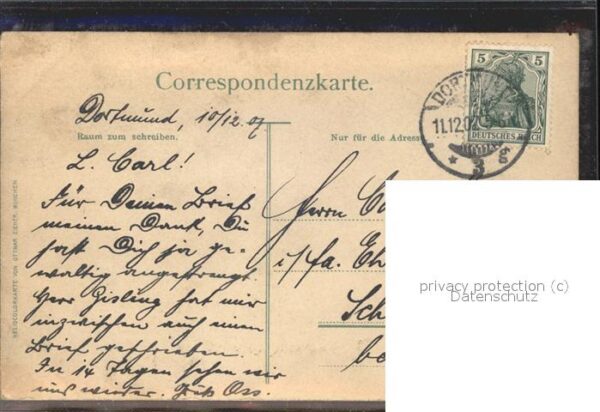 Correspondenzkarte.
5 5
DEUTSCHES REICH
DORTMUND
11.12.07
* 3 g
Dortmund, 10/12.07
Raum zum schreiben.
Nur für die Adresse
HELIOCOLORKARTE VON OTTMAR ZIEHER, MÜNCHEN
L. Carl!
Für Deinen Brief
meinen Dank, Du
hast Dich ja ge-
waltig angestrengt
Herr Gisling hat mir
inzwischen auch einen
Brief geschrieben.
In 14 Tagen sehen wir
uns wieder.
Herrn
i/fa.
Sch
be
privacy protection (c)
Datenschutz